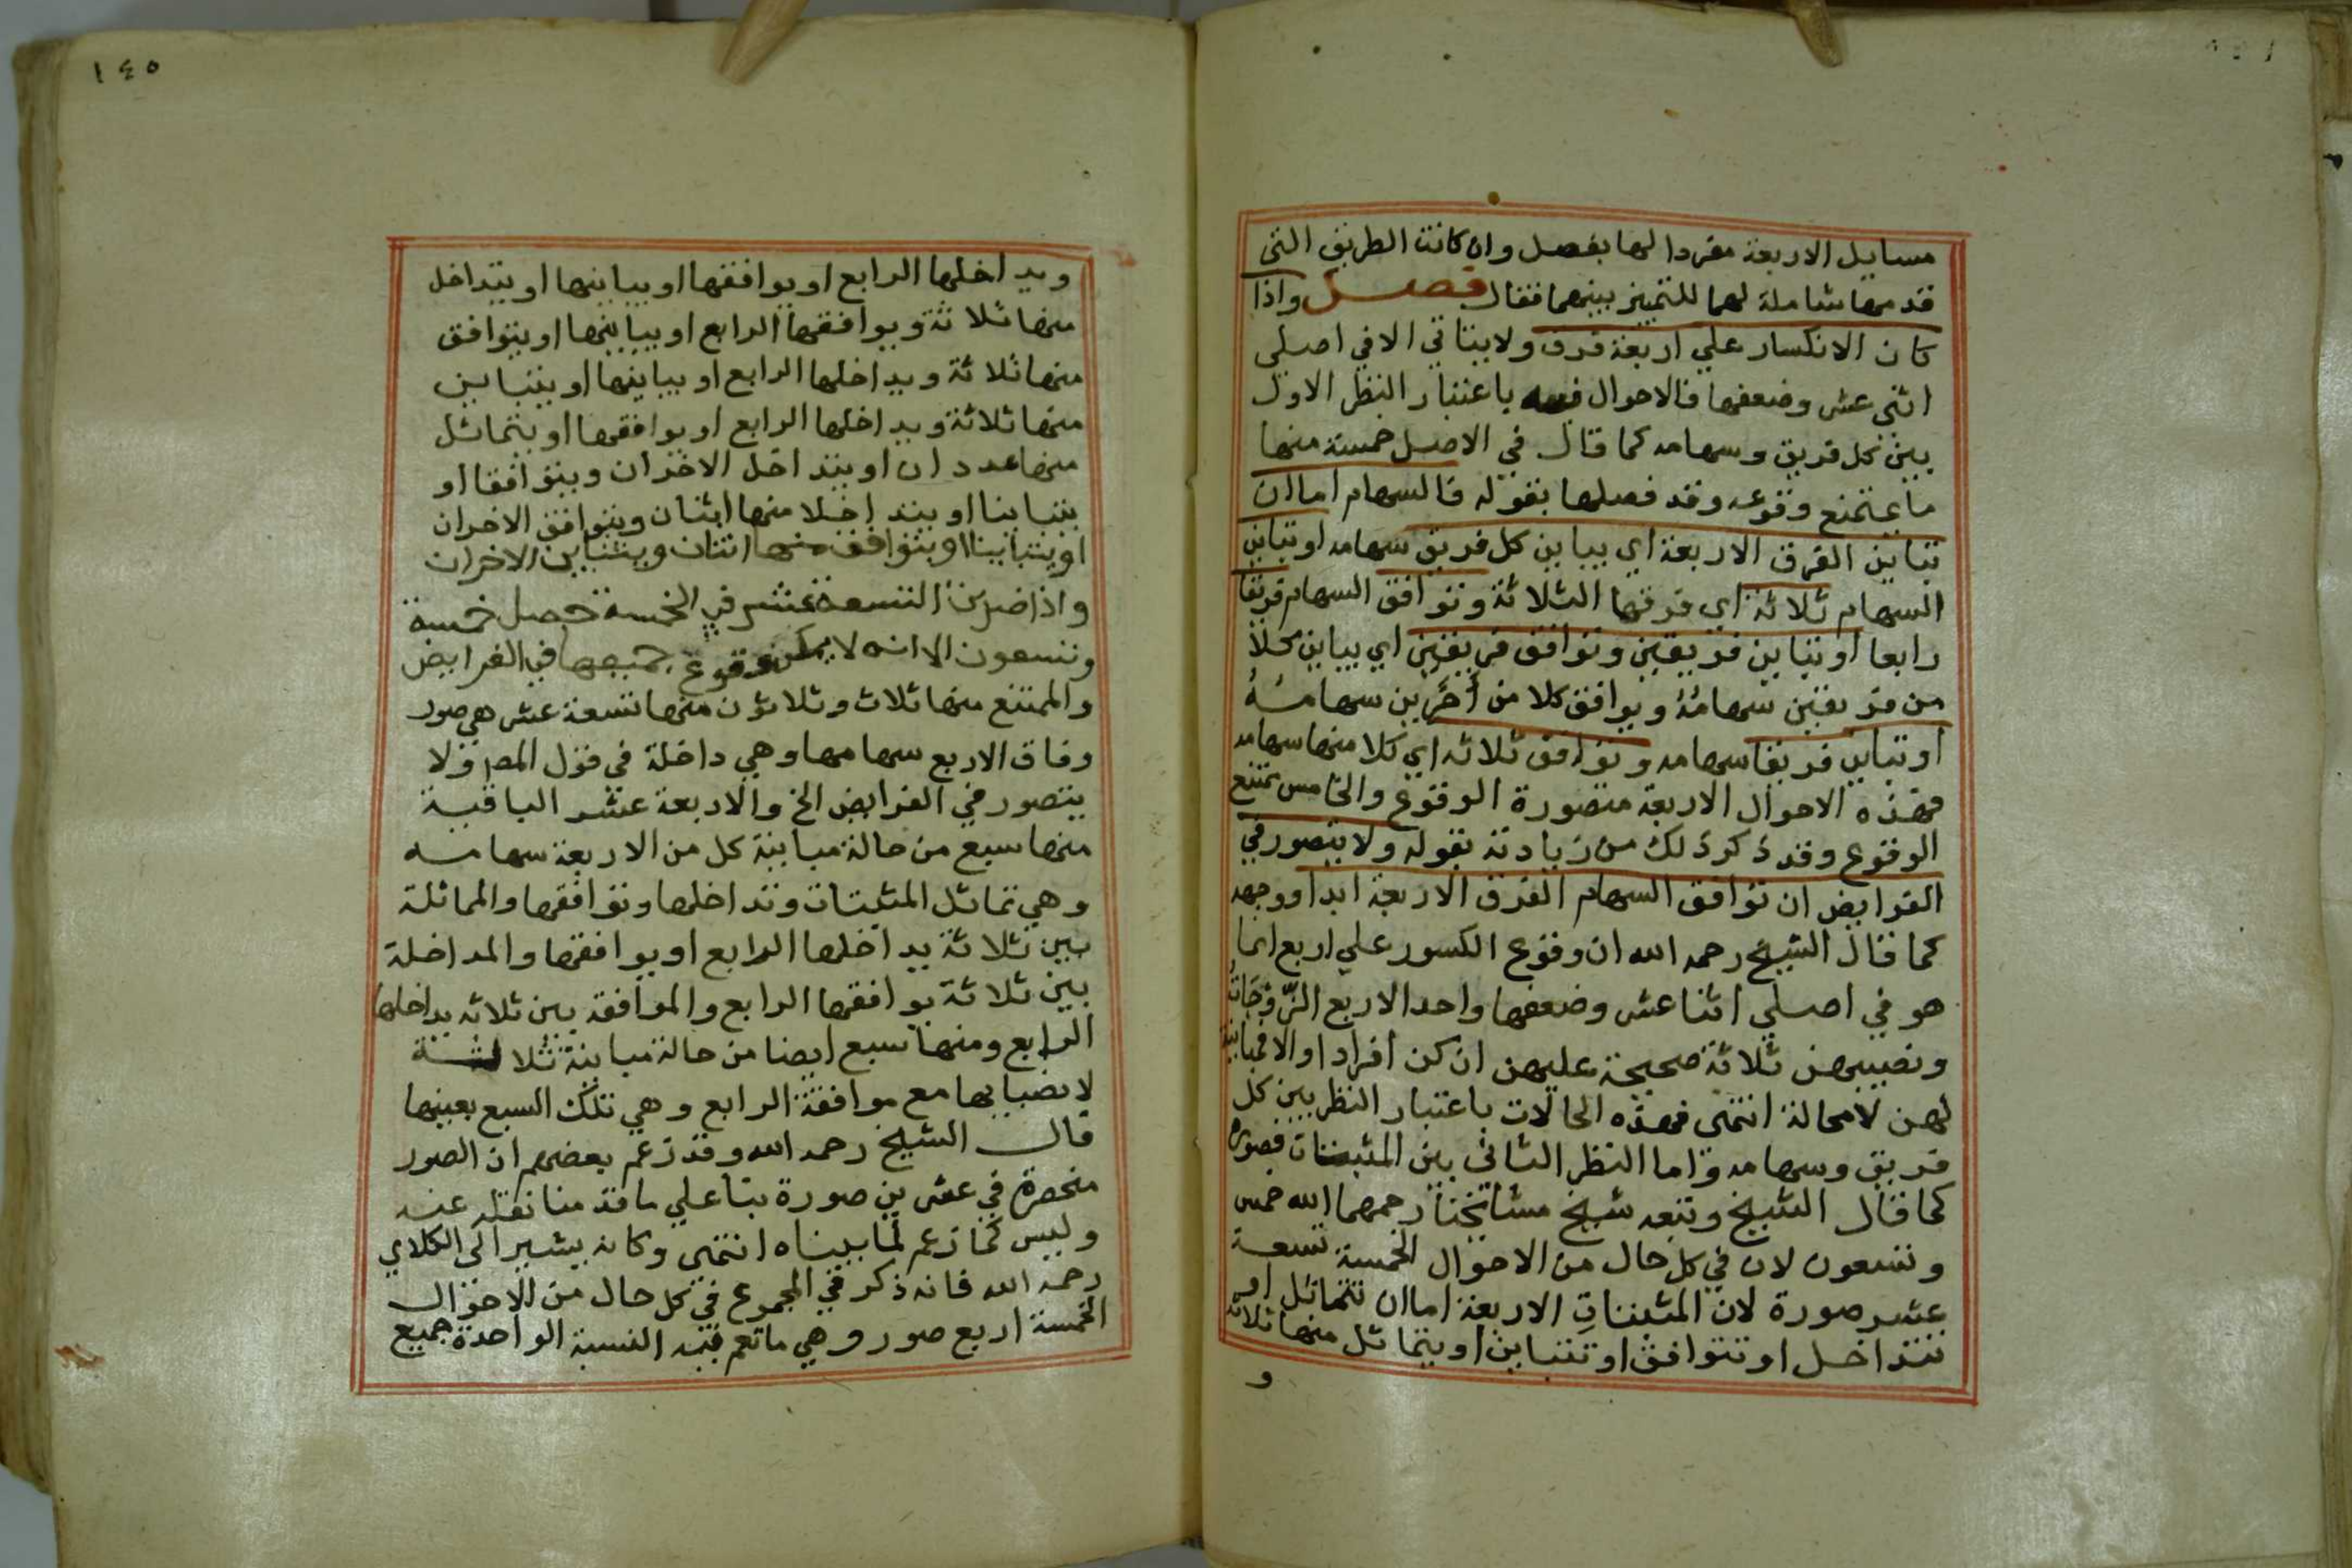 مسايل الاربعة مفردا لها بفصل وان كانت الطريق التي
قدمها شاملة لهما للتمييز بينهما فقال فصل واذا
كان الانكسار علي اربعة فرق ولا يتاتي الا في اصلي
اثني عشر وضعفها فالاحوال فيه باعتبار النظر الاول
بين كل فريق وسهامه كما قال في الاصل خمسة منها
ما يمتنع وقوعه وقد فصلها بقوله فالسهام اما ان
تباين الفرق الاربعة اي يباين كل فريق سهامه او تباين
السهام ثلاثة اي فرقها الثلاثة وتوافق السهام فريقا
رابعا او تباين فريقين وتوافق فريقين اي يباين كلا
من فريقين سهامُهُ ويوافق كلا من أخَرين سهامُهُ
او تباين فريقا سهامه وتوافق ثلاثه اي كلا منها سهامه
فهذه الاحوال الاربعة متصورة الوقوع والخامس يمتنع
الوقوع وقد ذكر ذلك من زيادته بقوله ولا يتصور في
الفرايض ان توافق السهام الفرق الاربعة ابدا ووجهه
كما قال الشيخ رحمه الله ان وقوع الكسور علي اربع انما
هو في اصلي اثنا عشر وضعفها واحد الاربع الزّوْجَاتُ
ونصيبهن ثلاثة صحيحة عليهن ان كن افراد او الا فمباينة
لهن لا محالة انتهى فهذه الحالات باعتبار النظر بين كل
فريق وسهامه واما النظر الثاني بين المثبتات فصوره
كما قال الشيخ وتبعه شيخ مشائخنا رحمهما الله خمس
وتسعون لان في كل حال من الاحوال الخمسة تسعة
عشر صورة لان المثبتاتِ الاربعة اما ان تتماثل او
تتداخل او تتوافق او تتباين او يتماثل منها ثلاثة
و
١٤٥
ويداخلها الرابع او يوافقها او يباينها او يتداخل
منها ثلاثة ويوافقها الرابع او يباينها او يتوافق
منها ثلاثة ويداخلها الرابع او يباينها او يتباين
منها ثلاثة ويداخلها الرابع او يوافقها او يتماثل
منها عددان او يتداخل الاخران ويتوافقا او
يتباينا او يتداخلا منها اثنان ويتوافق الاخران
او يتباينا او يتوافق منها اثنان ويتباين الاخران
واذا ضربت التسعة عشر في الخمسة حصل خمسة
وتسعون الا انه لا يمكن وقوع جميعها في الفرايض
والممتنع منها ثلاث وثلاثون منها تسعة عشر هي صور
وفاق الاربع سهامها وهي داخلة في قول المصر ولا
يتصور في الفرايض الخ والاربعة عشر الباقية
منها سبع من حالة مباينة كل من الاربعة سهامه
وهي تماثل المثبتات وتداخلها وتوافقها والمماثلة
بين ثلاثة يداخلها الرابع او يوافقها والمداخلة
بين ثلاثة يوافقها الرابع والموافقة بين ثلاثه يداخلها
الرابع ومنها سبع ايضا من حالة مباينة ثلاثة
لانصبايها مع موافقة الرابع وهي تلك السبع بعينها
قال الشيخ رحمه الله وقد زعم بعضهم ان الصور
منحصرة في عشرين صورة بنا علي ما قدمنا نقله عنه
وليس كما زعم لما بيناه انتهى وكانه يشير الى الكلاي
رحمه الله فانه ذكر في المجموع في كل حال من الاحوال
الخمسة اربع صور وهي ما تعم فيه النسبة الواحدة جميع